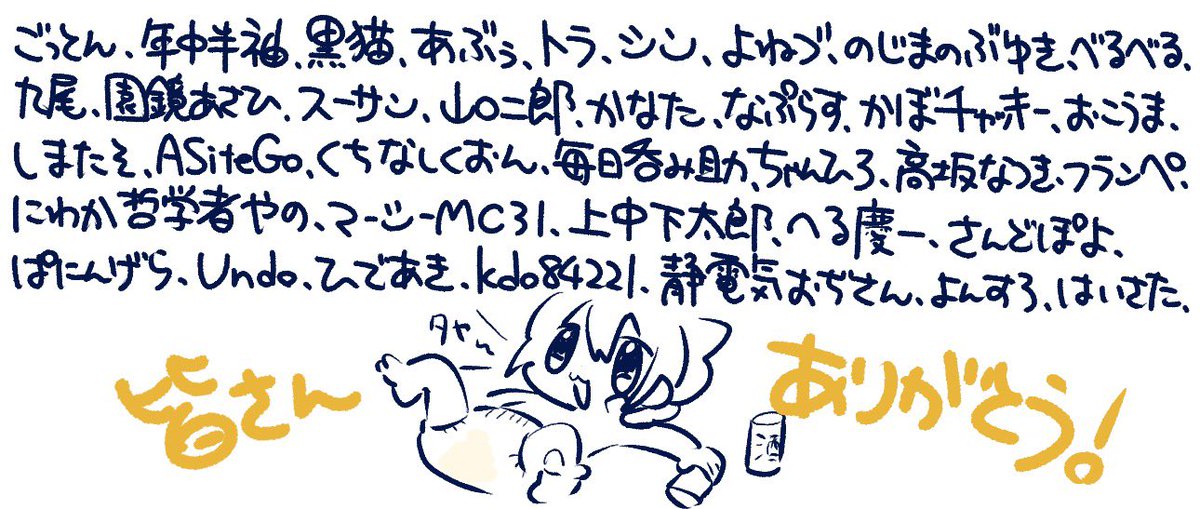 ごっとん、年中半袖、黒猫、あぶぅ、トラ、シン、よねづ、のじまのぶゆき、べるべる、
九尾、園鏡あさひ、スーサン、山口二郎、かなた、なぷらす、かぼチャッキー、おこうま、
しまたそ、ASiteGo、くちなしくおん、毎日呑み助、ちゃんひろ、高坂なつき、フランペ、
にわか哲学者やの、マーシーMC31、上中下太郎、へる慶一、さんどぽよ、
ぱにんげら、Undo、ひであき、kdo84221、静電気おぢさん、よんすろ、はいさた、
皆さん
ありがとう!
酒